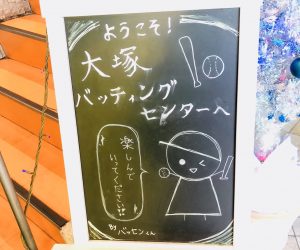 ようこそ!
大塚
バッティング
センターへ
楽しんで
いってください!!
by
バッセンくん